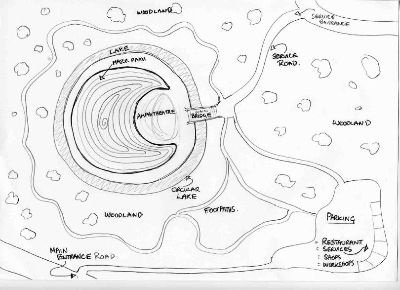 WOODLAND
SERVICE
ENTRANCE
LAKE
MAZE PATH
SERVICE
ROAD.
AMPHITHEATRE
BRIDGE
WOODLAND
CIRCULAR
LAKE
WOODLAND
FOOTPATHS.
PARKING
RESTAURANT
SERVICES
SHOPS
WORKSHOPS
MAIN
ENTRANCE ROAD.